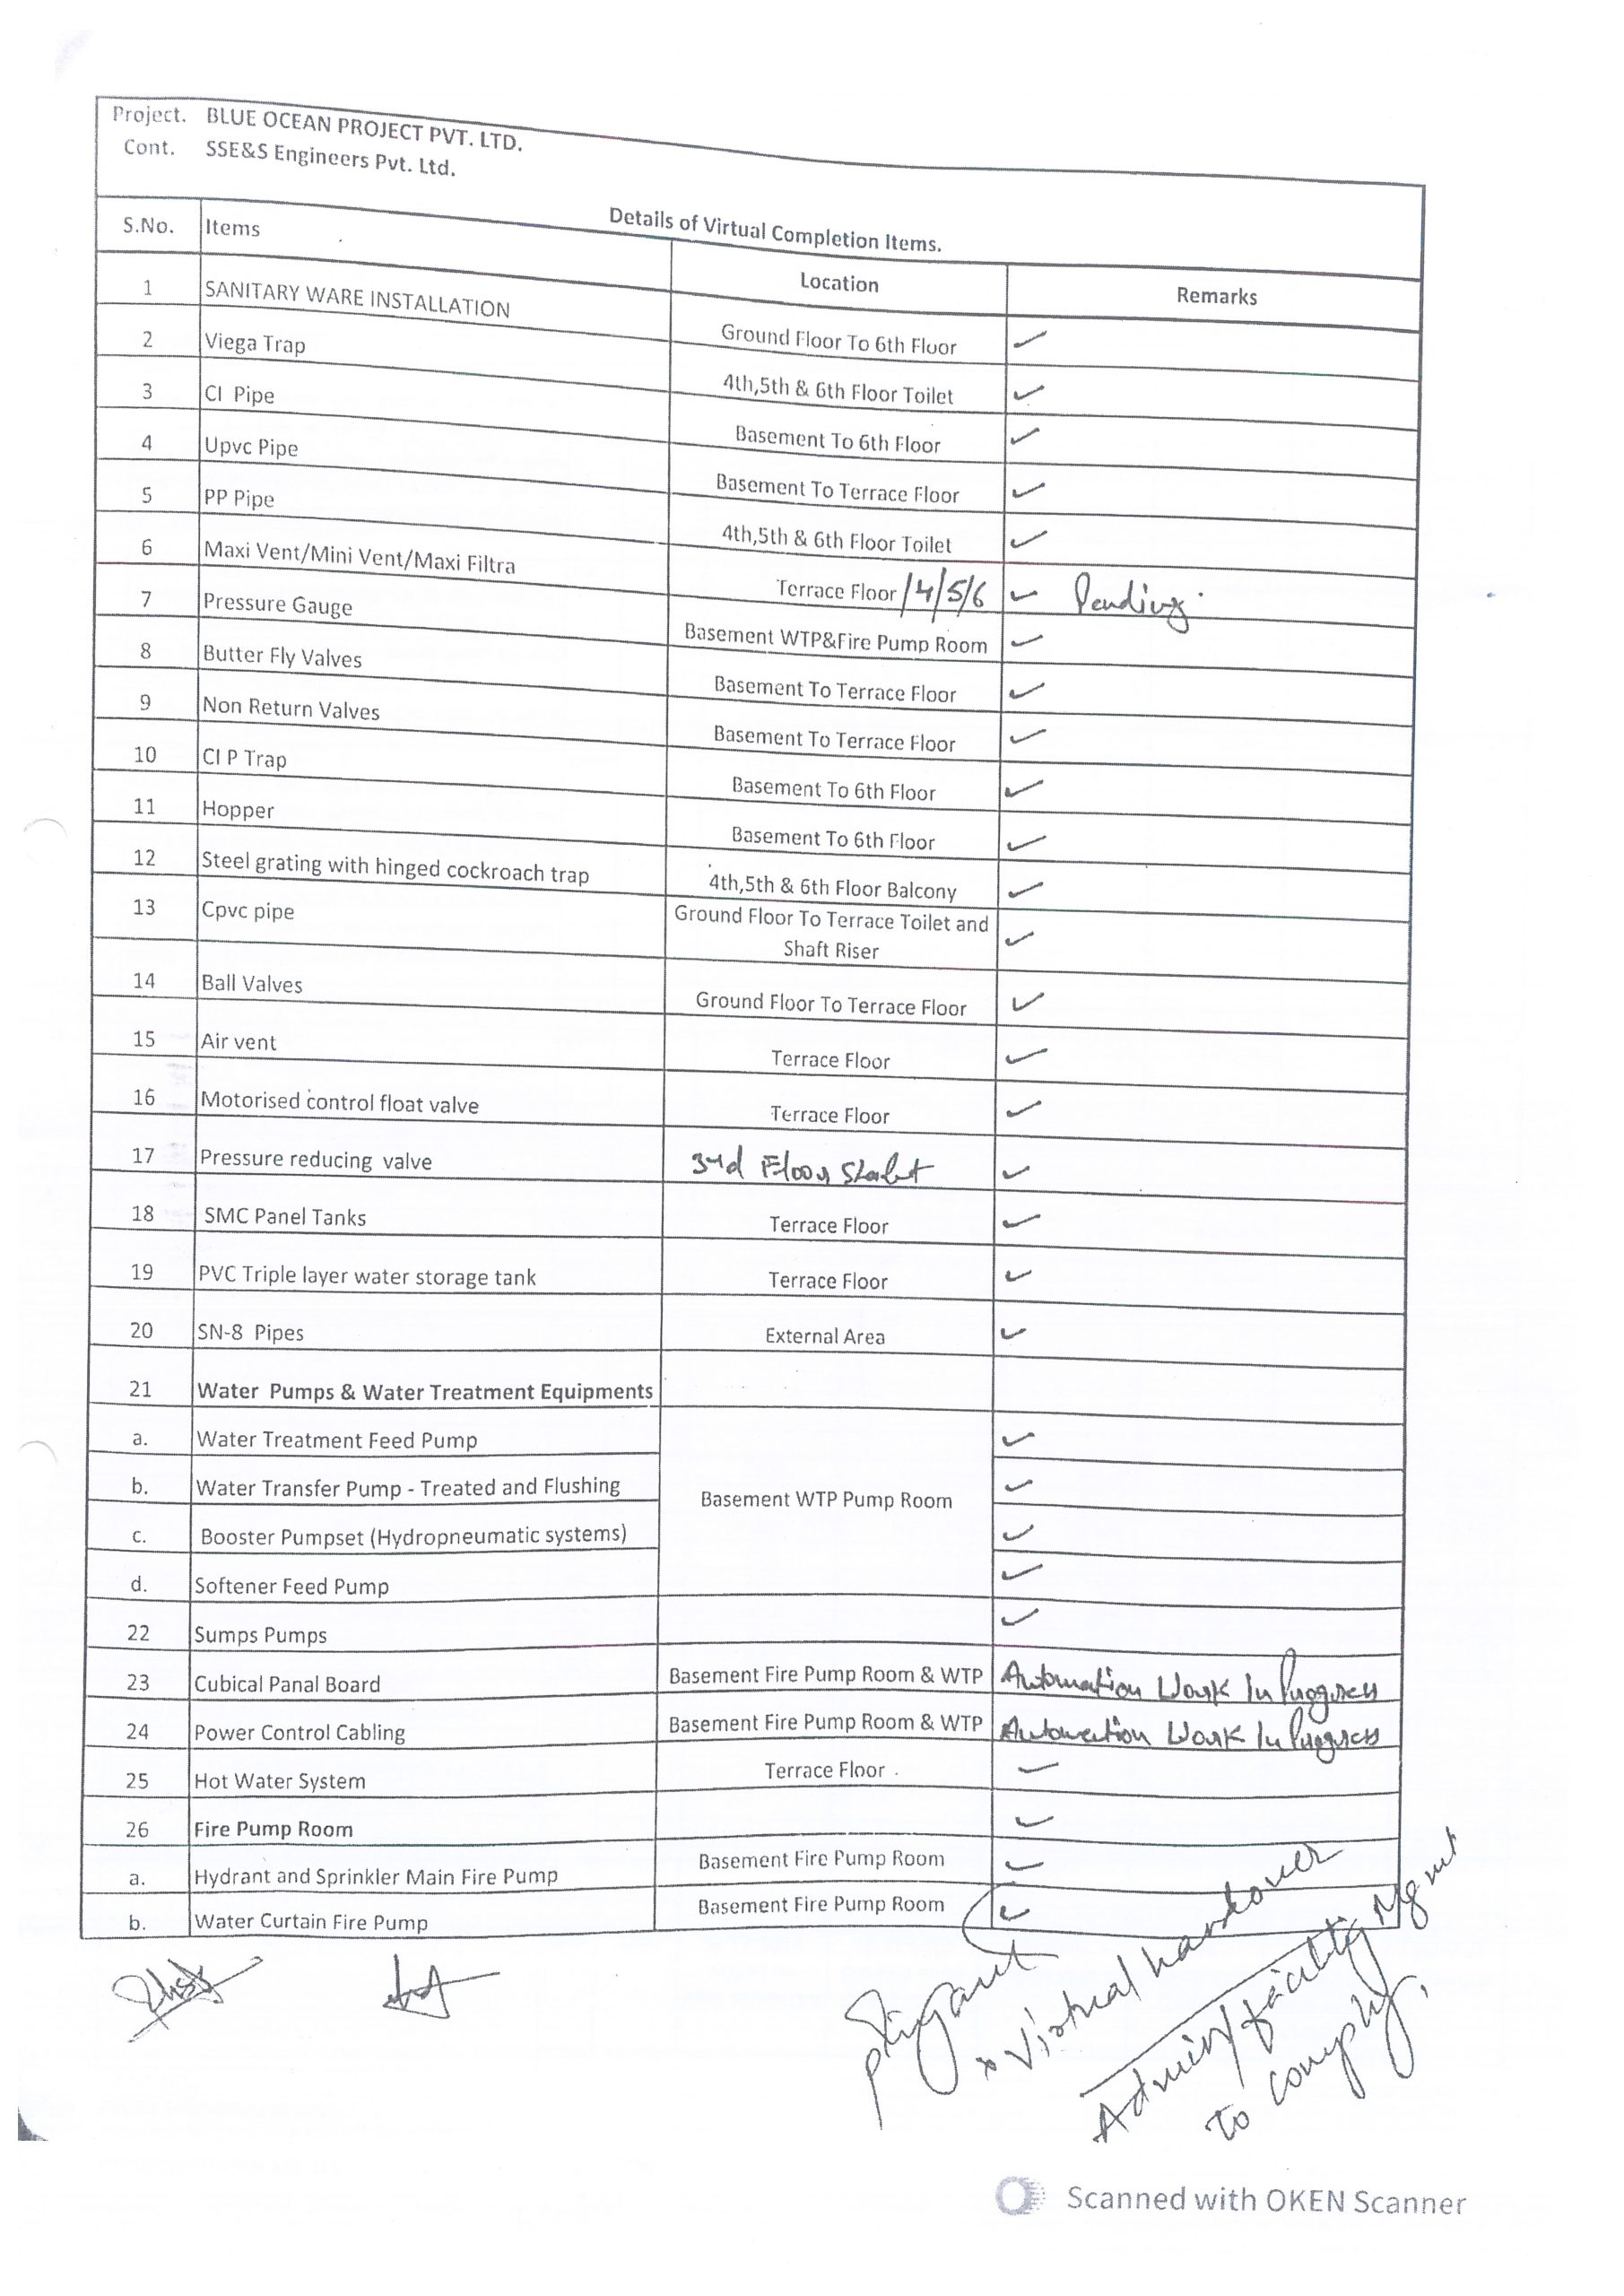 Project. BLUE OCEAN PROJECT PVT. LTD.
Cont. SSE&S Engineers Pvt. Ltd.
Details of Virtual Completion Items.
S.No. Items Location Remarks
1 SANITARY WARE INSTALLATION Ground Floor To 6th Floor ✓
2 Viega Trap 4th,5th & 6th Floor Toilet ✓
3 CI Pipe Basement To 6th Floor ✓
4 Upvc Pipe Basement To Terrace Floor ✓
5 PP Pipe 4th,5th & 6th Floor Toilet ✓
6 Maxi Vent/Mini Vent/Maxi Filtra Terrace Floor /4/5/6 ✓ Pending.
7 Pressure Gauge Basement WTP&Fire Pump Room ✓
8 Butter Fly Valves Basement To Terrace Floor ✓
9 Non Return Valves Basement To Terrace Floor ✓
10 CI P Trap Basement To 6th Floor ✓
11 Hopper Basement To 6th Floor ✓
12 Steel grating with hinged cockroach trap 4th,5th & 6th Floor Balcony ✓
13 Cpvc pipe Ground Floor To Terrace Toilet and
Shaft Riser ✓
14 Ball Valves Ground Floor To Terrace Floor ✓
15 Air vent Terrace Floor ✓
16 Motorised control float valve Terrace Floor ✓
17 Pressure reducing valve 3rd Floor ✓
18 SMC Panel Tanks Terrace Floor ✓
19 PVC Triple layer water storage tank Terrace Floor ✓
20 SN-8 Pipes External Area ✓
21 Water Pumps & Water Treatment Equipments
a. Water Treatment Feed Pump ✓
b. Water Transfer Pump - Treated and Flushing Basement WTP Pump Room ✓
c. Booster Pumpset (Hydropneumatic systems) ✓
d. Softener Feed Pump ✓
22 Sumps Pumps ✓
23 Cubical Panal Board Basement Fire Pump Room & WTP Automation Work In Progress
24 Power Control Cabling Basement Fire Pump Room & WTP Automation Work In Progress
25 Hot Water System Terrace Floor . ✓
26 Fire Pump Room ✓
a. Hydrant and Sprinkler Main Fire Pump Basement Fire Pump Room ✓
b. Water Curtain Fire Pump Basement Fire Pump Room ✓
Virtual handover
Admin/facility Mgmt
to comply.
Scanned with OKEN Scanner